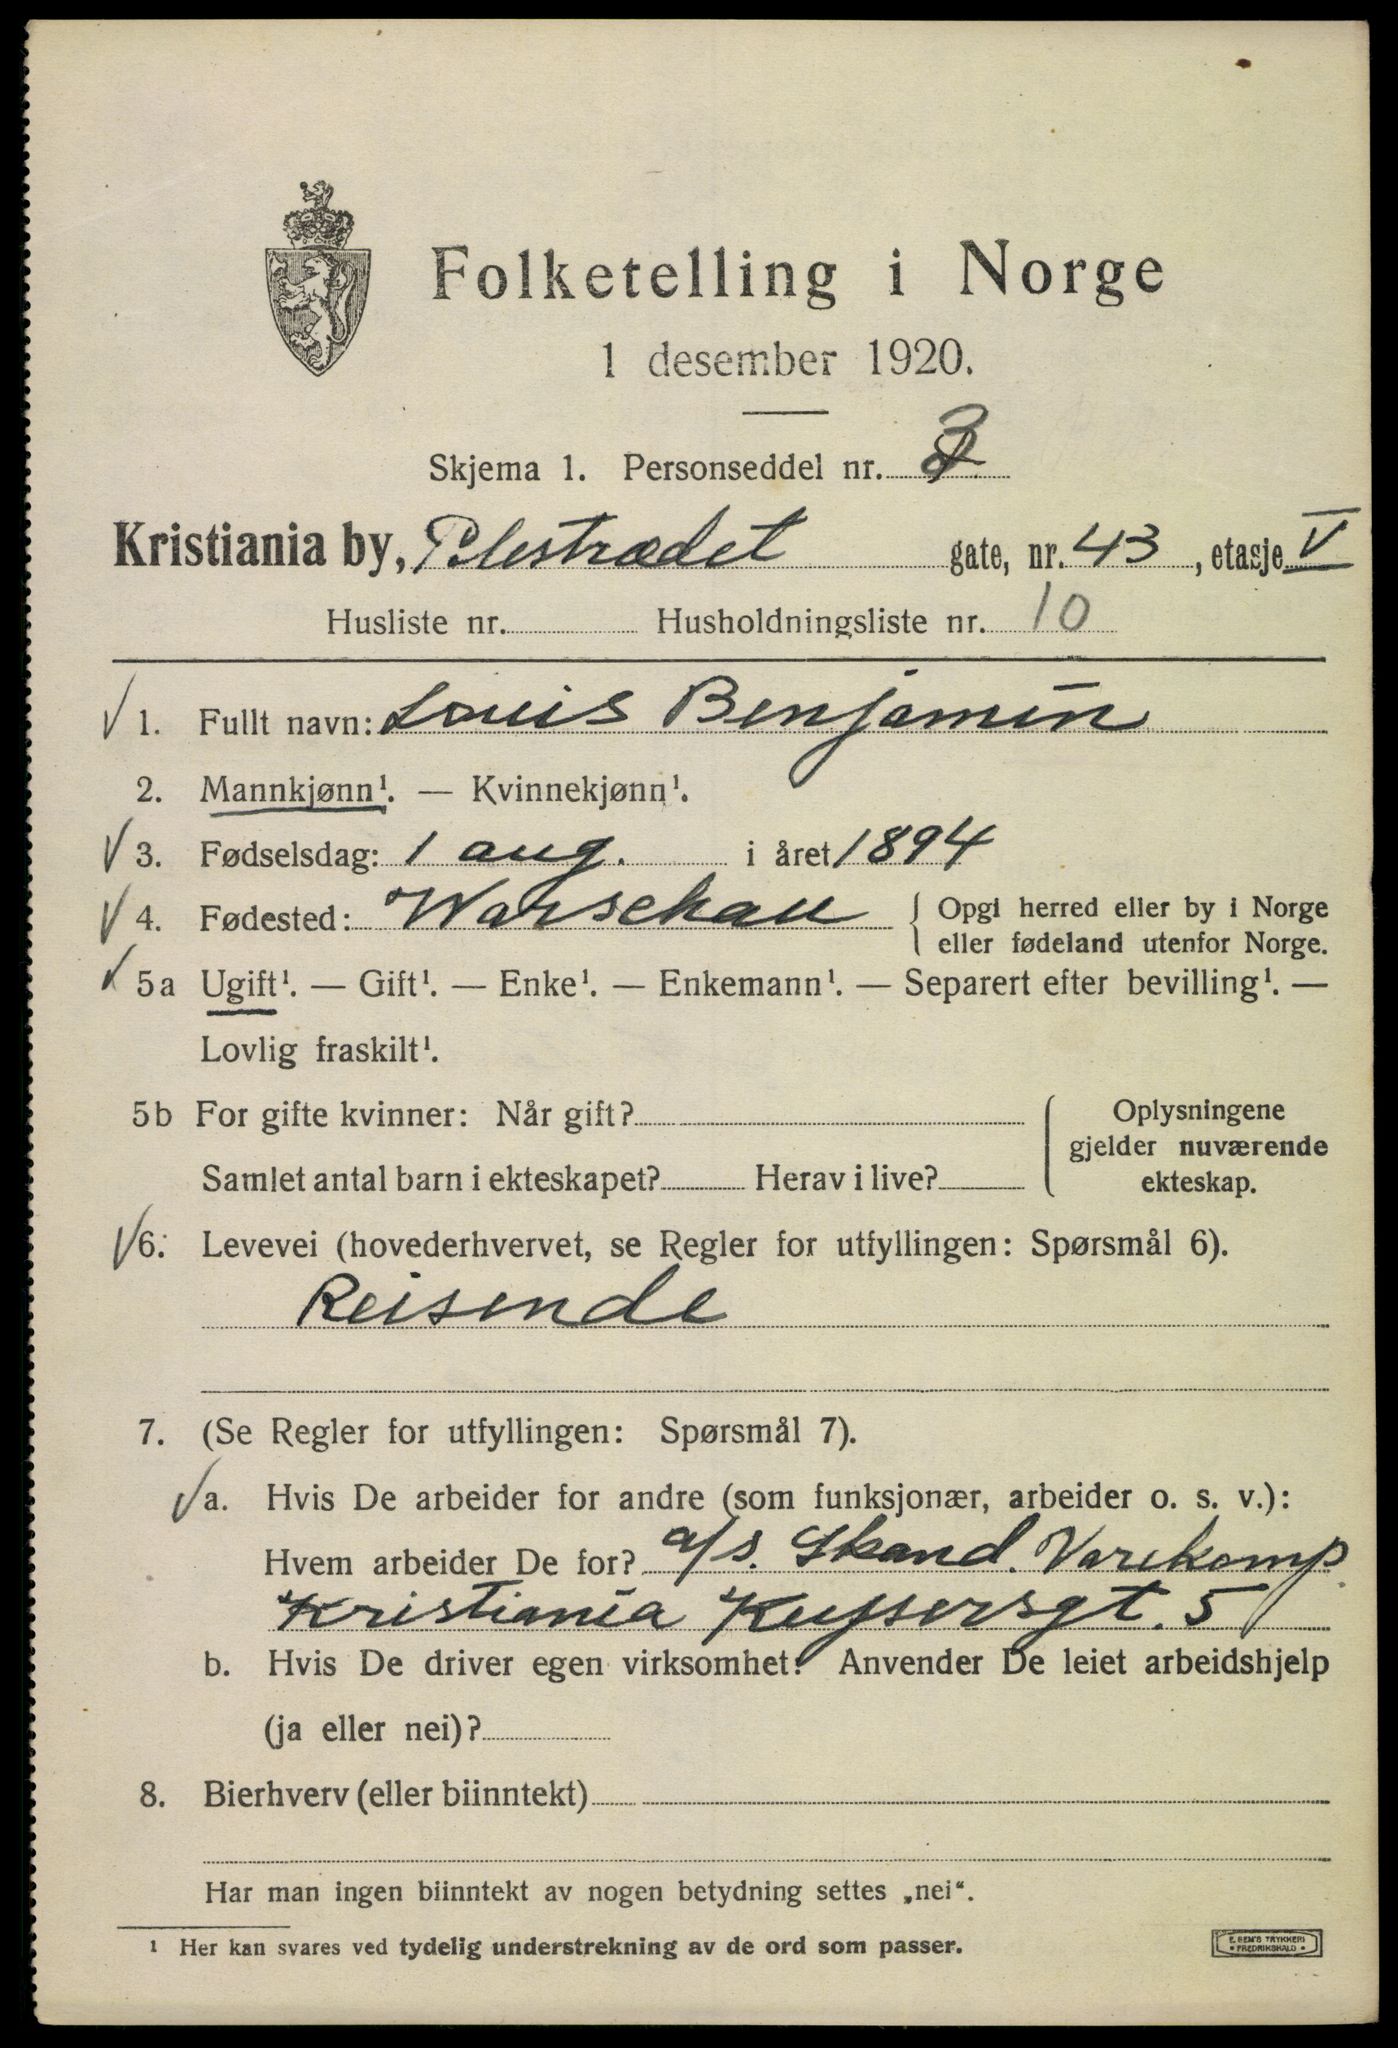 Folketelling i Norge
1 desember 1920.
Skjema 1. Personseddel nr. 3
Kristiania by, Pilestrædet gate, nr. 43, etasje V
Husliste nr. Husholdningsliste nr. 10
1. Fullt navn: Louis Benjamin
2. Mannkjønn¹. — Kvinnekjønn¹.
3. Fødselsdag: 1 aug. i året 1894
4. Fødested: Warschau { Opgi herred eller by i Norge
eller fødeland utenfor Norge.
5a Ugift¹. — Gift¹. — Enke¹. — Enkemann¹. — Separert efter bevilling¹. —
Lovlig fraskilt¹.
5b For gifte kvinner: Når gift?
Samlet antal barn i ekteskapet? Herav i live?
Oplysningene
gjelder nuværende
ekteskap.
6. Levevei (hovederhvervet, se Regler for utfyllingen: Spørsmål 6).
Reisende
7. (Se Regler for utfyllingen: Spørsmål 7).
a. Hvis De arbeider for andre (som funksjonær, arbeider o. s. v.):
Hvem arbeider De for? a/s. Skand. Varekomp
Kristiania Keysersgt. 5
b. Hvis De driver egen virksomhet: Anvender De leiet arbeidshjelp
(ja eller nei)?
8. Bierhverv (eller biinntekt)
Har man ingen biinntekt av nogen betydning settes „nei“.
¹ Her kan svares ved tydelig understrekning av de ord som passer.
E. SEM'S TRYKKERI
• FREDRIKSHALD •